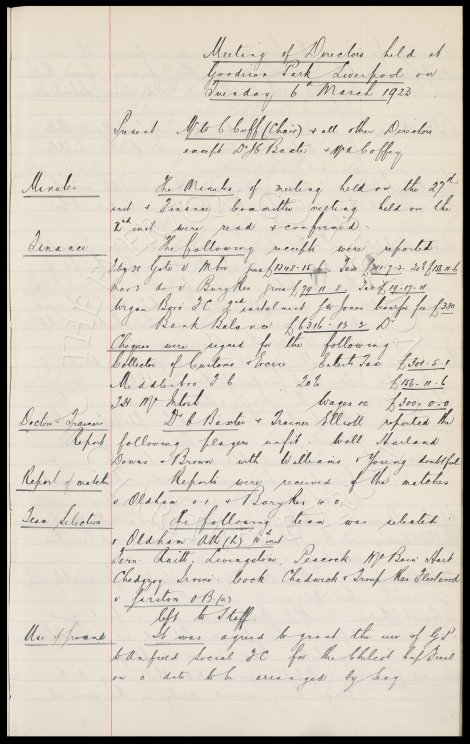 Meeting of Directors held at
Goodison Park Liverpool on
Tuesday 6th March 1923
Present Mr W C Cuff (Chair) & all other Directors
except Dr J C Baxter & Mr A Coffey
Minutes The Minutes of meeting held on the 27th
inst & Finance Committee meeting held on the
2nd inst were read & confirmed.
Finance The following receipts were reported
Gate v Mbro gross £1348.15.6 Tax 20% £156.11.6
Mar 3 do v Bury Res gross £79.11.8 Tax £19.17.11
Wigan Boro FC 2nd instalment Jones transfer fee
Bank Balance £6316.19.2 D
Cheques were signed for the following
Collector of Customs & Excise Entert Tax
Middlesbro F C 20% £156.11.6
Wages &c £300.0.0
Doctor & Trainers Dr C Baxter & Trainer Elliott reported the
Report following players unfit. Wall Harland
Downs & Brown with Williams & Young doubtful
Report of matches Reports were received of the matches
v Oldham 0-1 & Bury Res
Team Selection The following team was selected
v Oldham Ath (h) 10th inst
Fern. Raitt, Livingstone, Peacock Mc Bain Hart
Chedgzoy Irvine Cock Chadwick & Troup Res Fleetwood
v Garston (a)
left to Staff.
Use of ground It was agreed to grant the use of G.P.
to Anfield Social F C for the Final
on a date to be arranged by Secy.